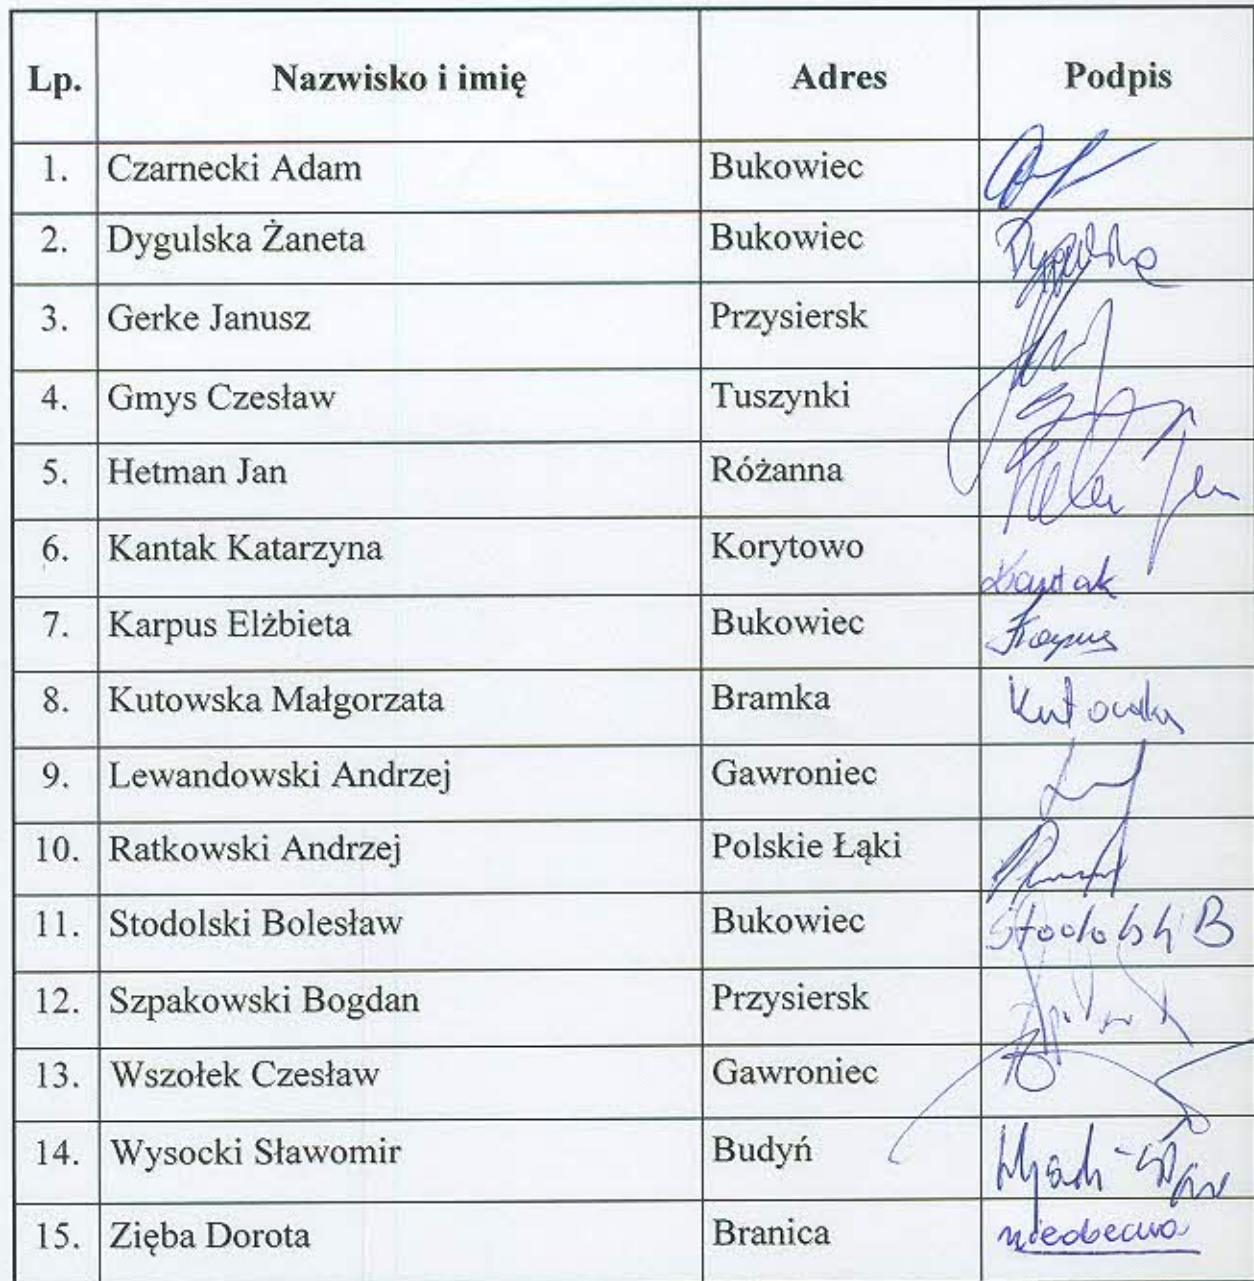 Lp. Nazwisko i imię Adres Podpis
1. Czarnecki Adam Bukowiec
2. Dygulska Żaneta Bukowiec Dygulska
3. Gerke Janusz Przysiersk
4. Gmys Czesław Tuszynki
5. Hetman Jan Różanna
6. Kantak Katarzyna Korytowo Kantak
7. Karpus Elżbieta Bukowiec Karpus
8. Kutowska Małgorzata Bramka Kutowska
9. Lewandowski Andrzej Gawroniec
10. Ratkowski Andrzej Polskie Łąki
11. Stodolski Bolesław Bukowiec Stodolski B
12. Szpakowski Bogdan Przysiersk
13. Wszołek Czesław Gawroniec
14. Wysocki Sławomir Budyń
15. Zięba Dorota Branica nieobecna